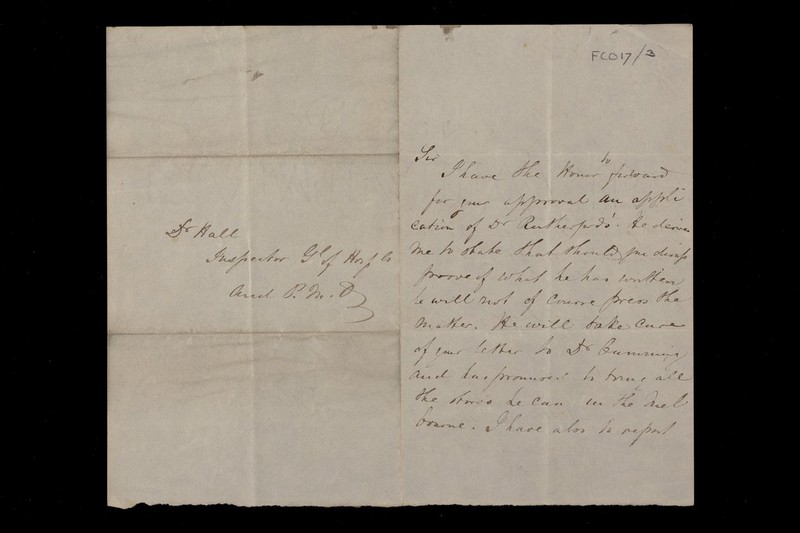 Dr Hall
Inspector Gl of Hosp ls
And P. M. O
FCO17/3
Sir
I have the Honor to forward
for your approval an appli
cation of Dr Rutherford's. He desires
me to state that should you disap
proove of what he has written
he will not of course press the
matter. He will take care
of your letter to Dr Cumming
and has promised to bring all
the stores he can in the Mel
bourne. I have also to report